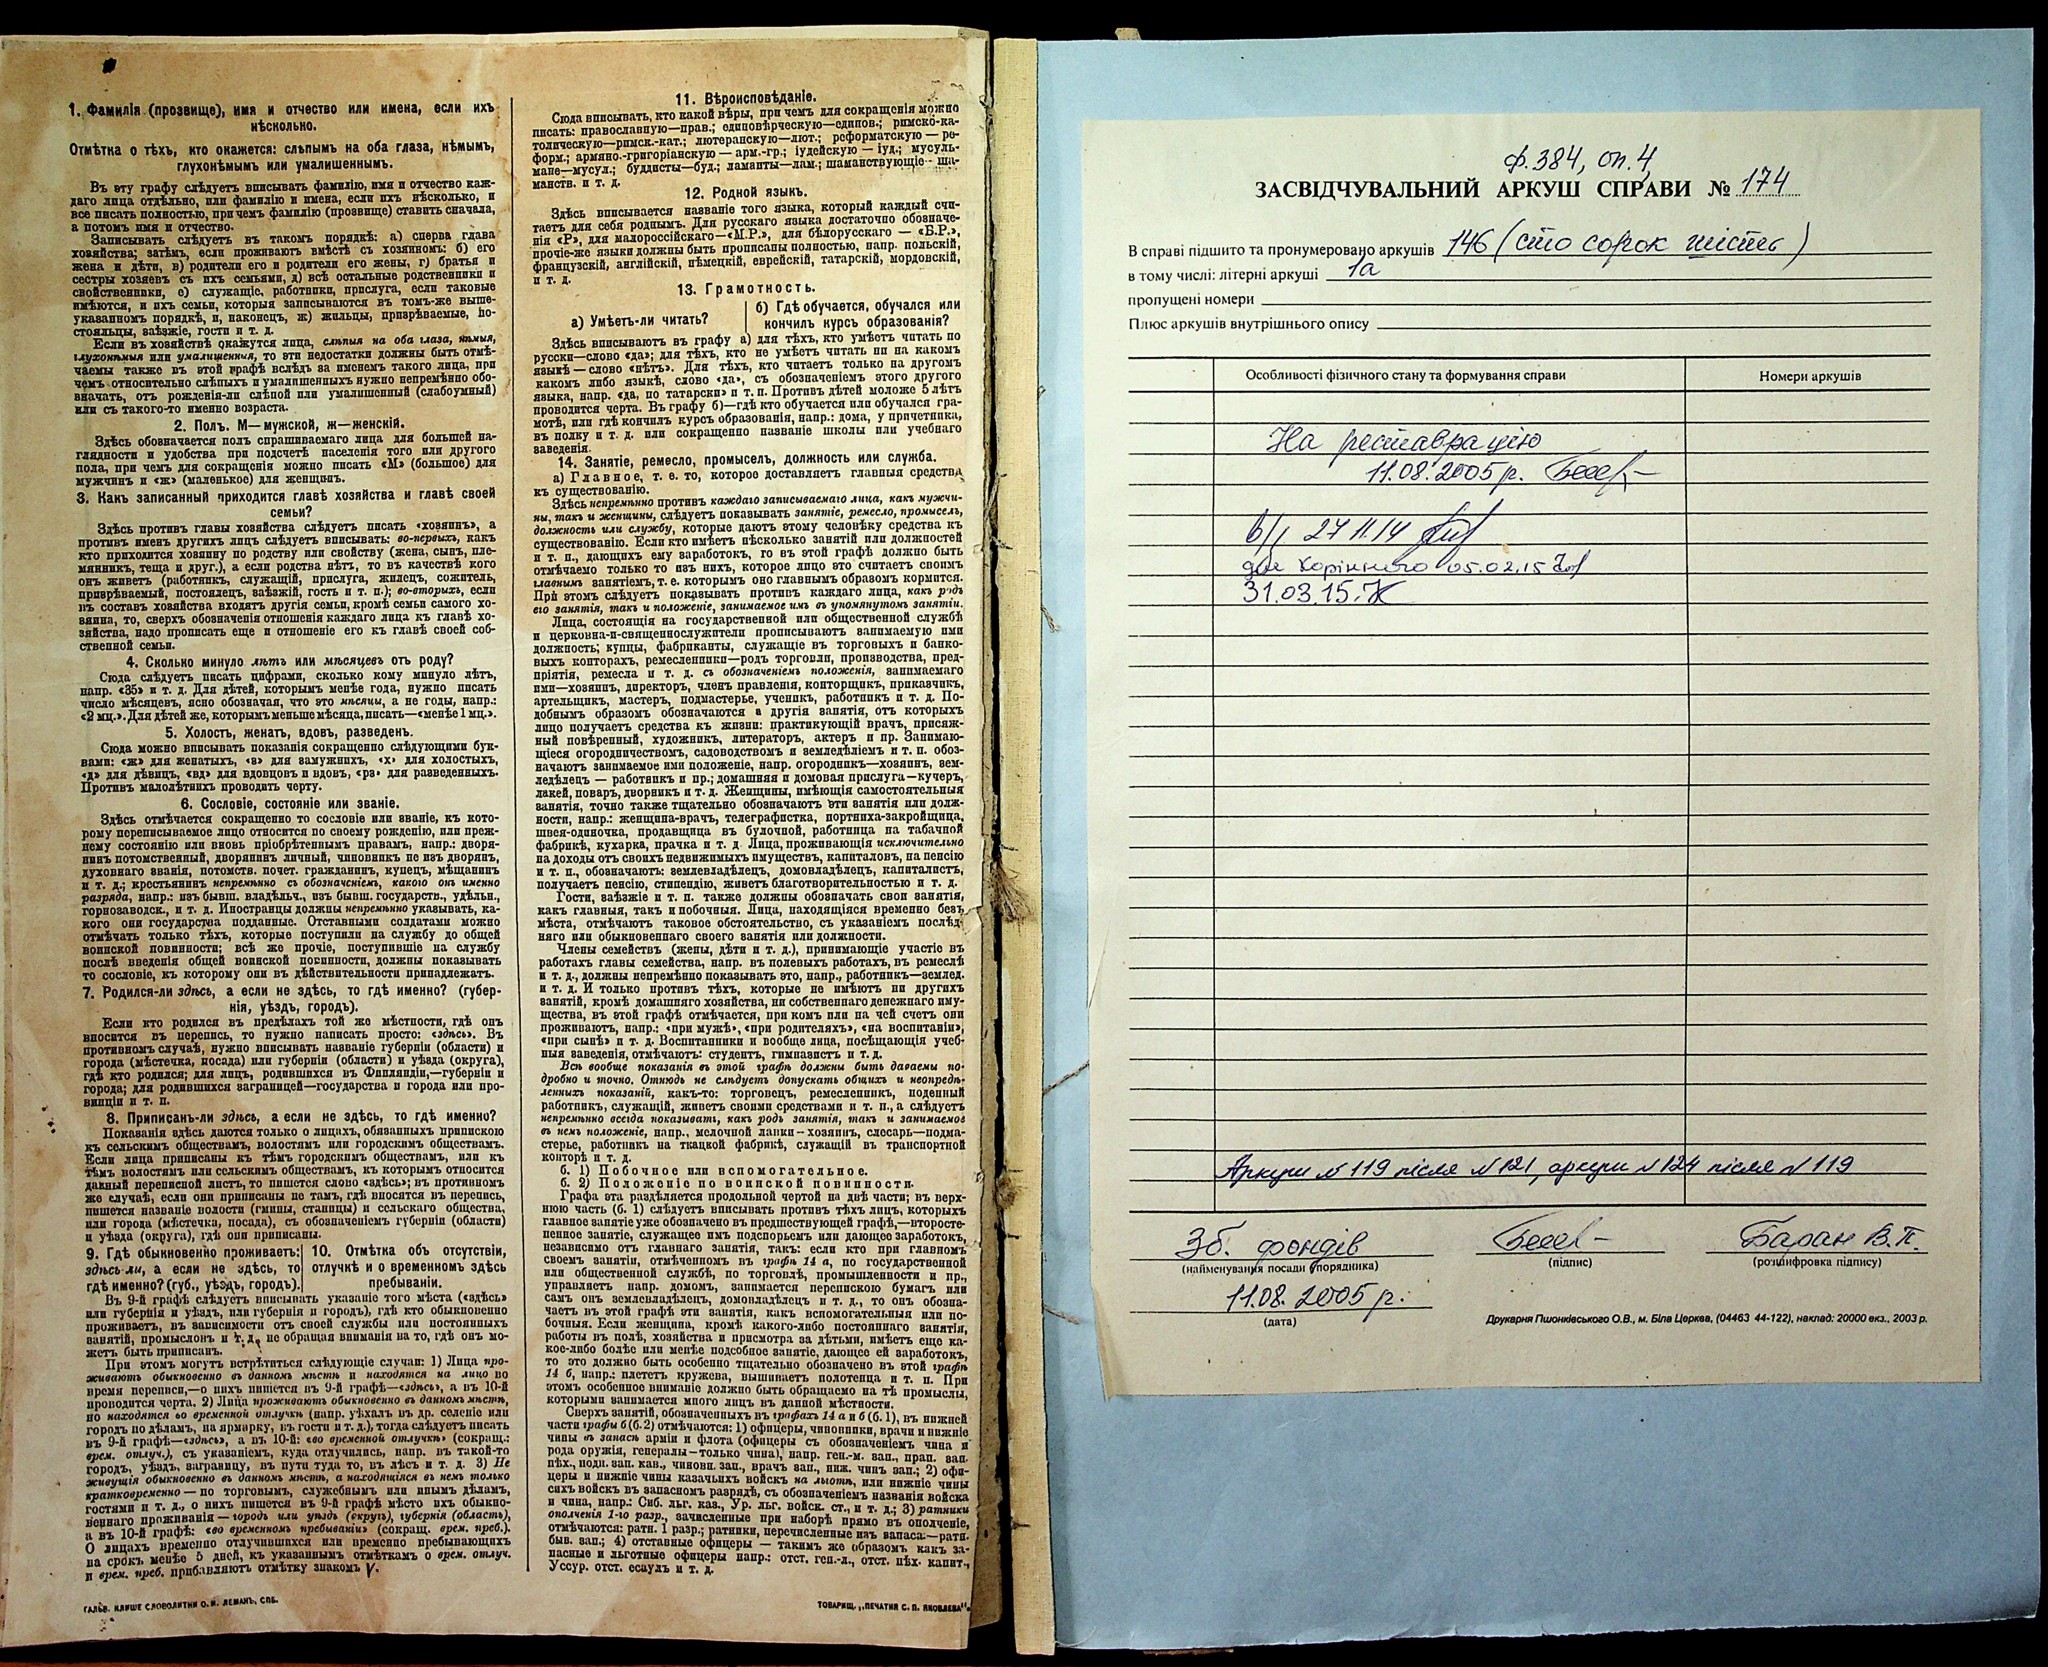 1. Фамилія (прозвище), имя и отчество или имена, если ихъ
нѣсколько.
Отмѣтка о тѣхъ, кто окажется: слѣпымъ на оба глаза, нѣмымъ,
глухонѣмымъ или умалишеннымъ.
Въ эту графу слѣдуетъ вписывать фамилію, имя и отчество каж-
даго лица отдѣльно, или фамилію и имена, если ихъ нѣсколько, и
все писать полностью, при чемъ фамилію (прозвище) ставить сначала,
а потомъ имя и отчество.
Записывать слѣдуетъ въ такомъ порядкѣ: а) сперва глава
хозяйства; затѣмъ, если проживаютъ вмѣстѣ съ хозяиномъ: б) его
жена и дѣти, в) родители его и родители его жены, г) братья и
сестры хозяевъ съ ихъ семьями, д) всѣ остальные родственники и
свойственники, е) служащіе, работники, прислуга, если таковые
имѣются, и ихъ семьи, которыя записываются въ томъ-же выше-
указанномъ порядкѣ, и, наконецъ, ж) жильцы, призрѣваемые, по-
стояльцы, заѣзжіе, гости и т. д.
Если въ хозяйствѣ окажутся лица, слѣпыя на оба глаза, нѣмыя,
глухонѣмыя или умалишенныя, то эти недостатки должны быть отмѣ-
чаемы также въ этой графѣ вслѣдъ за именемъ такого лица, при
чемъ относительно слѣпыхъ и умалишенныхъ нужно непремѣнно обо-
значать, отъ рожденія-ли слѣпой или умалишенный (слабоумный)
или съ такого-то именно возраста.
2. Полъ. М—мужской, ж—женскій.
Здѣсь обозначается полъ спрашиваемаго лица для большей на-
глядности и удобства при подсчетѣ населенія того или другого
пола, при чемъ для сокращенія можно писать «М» (большое) для
мужчинъ и «ж» (маленькое) для женщинъ.
3. Какъ записанный приходится главѣ хозяйства и главѣ своей
семьи?
Здѣсь противъ главы хозяйства слѣдуетъ писать «хозяинъ», а
противъ именъ другихъ лицъ слѣдуетъ вписывать: во-первыхъ, какъ
кто приходится хозяину по родству или свойству (жена, сынъ, пле-
мянникъ, теща и друг.), а если родства нѣтъ, то въ качествѣ кого
онъ живетъ (работникъ, служащій, прислуга, жилецъ, сожитель,
призрѣваемый, постоялецъ, заѣзжій, гость и т. п.); во-вторыхъ, если
въ составъ хозяйства входятъ другія семьи, кромѣ семьи самого хо-
зяина, то, сверхъ обозначенія отношенія каждаго лица къ главѣ хо-
зяйства, надо прописать еще и отношеніе его къ главѣ своей соб-
ственной семьи.
4. Сколько минуло лѣтъ или мѣсяцевъ отъ роду?
Сюда слѣдуетъ писать цифрами, сколько кому минуло лѣтъ,
напр. «35» и т. д. Для дѣтей, которымъ менѣе года, нужно писать
число мѣсяцевъ, ясно обозначая, что это мѣсяцы, а не годы, напр.:
«2 мц.». Для дѣтей же, которымъ меньше мѣсяца, писать—«менѣе 1 мц.».
5. Холостъ, женатъ, вдовъ, разведенъ.
Сюда можно вписывать показанія сокращенно слѣдующими бук-
вами: «ж» для женатыхъ, «з» для замужнихъ, «х» для холостыхъ,
«д» для дѣвицъ, «вд» для вдовцовъ и вдовъ, «рз» для разведенныхъ.
Противъ малолѣтнихъ проводить черту.
6. Сословіе, состояніе или званіе.
Здѣсь отмѣчается сокращенно то сословіе или званіе, къ кото-
рому переписываемое лицо относится по своему рожденію, или преж-
нему состоянію или вновь пріобрѣтеннымъ правамъ, напр.: дворя-
нинъ потомственный, дворянинъ личный, чиновникъ не изъ дворянъ,
духовнаго званія, потомств. почет. гражданинъ, купецъ, мѣщанинъ
и т. д.; крестьянинъ непремѣнно съ обозначеніемъ, какого онъ именно
разряда, напр.: изъ бывш. владѣльч., изъ бывш. государств., удѣльн.,
горнозаводск., и т. д. Иностранцы должны непремѣнно указывать, ка-
кого они государства подданные. Отставными солдатами можно
отмѣчать только тѣхъ, которые поступили на службу до общей
воинской повинности; всѣ же прочіе, поступившіе на службу
послѣ введенія общей воинской повинности, должны показывать
то сословіе, къ которому они въ дѣйствительности принадлежатъ.
7. Родился-ли здѣсь, а если не здѣсь, то гдѣ именно? (губер-
нія, уѣздъ, городъ).
Если кто родился въ предѣлахъ той же мѣстности, гдѣ онъ
вносится въ перепись, то нужно написать просто: «здѣсь». Въ
противномъ случаѣ, нужно вписывать названіе губерніи (области) и
города (мѣстечка, посада) или губерніи (области) и уѣзда (округа),
гдѣ кто родился; для лицъ, родившихся въ Финляндіи,—губерніи и
города; для родившихся заграницей—государства и города или про-
винціи и т. п.
8. Приписанъ-ли здѣсь, а если не здѣсь, то гдѣ именно?
Показанія здѣсь даются только о лицахъ, обязанныхъ припискою
къ сельскимъ обществамъ, волостямъ или городскимъ обществамъ.
Если лица приписаны къ тѣмъ городскимъ обществамъ, или къ
тѣмъ волостямъ или сельскимъ обществамъ, къ которымъ относится
данный переписной листъ, то пишется слово «здѣсь»; въ противномъ
же случаѣ, если они приписаны не тамъ, гдѣ вносятся въ перепись,
пишется названіе волости (гмины, станицы) и сельскаго общества,
или города (мѣстечка, посада), съ обозначеніемъ губерніи (области)
и уѣзда (округа), гдѣ они приписаны.
9. Гдѣ обыкновенно проживаетъ:
здѣсь-ли, а если не здѣсь, то
гдѣ именно? (губ., уѣздъ, городъ).
10. Отмѣтка объ отсутствіи,
отлучкѣ и о временномъ здѣсь
пребываніи.
Въ 9-й графѣ слѣдуетъ вписывать указаніе того мѣста («здѣсь»
или губернія и уѣздъ, или губернія и городъ), гдѣ кто обыкновенно
проживаетъ, въ зависимости отъ своей службы или постоянныхъ
занятій, промысловъ и т. д., не обращая вниманія на то, гдѣ онъ мо-
жетъ быть приписанъ.
При этомъ могутъ встрѣтиться слѣдующіе случаи: 1) Лица про-
живаютъ обыкновенно въ данномъ мѣстѣ и находятся на лицо во
время переписи,—о нихъ пишется въ 9-й графѣ—«здѣсь», а въ 10-й
проводится черта. 2) Лица проживаютъ обыкновенно въ данномъ мѣстѣ,
но находятся во временной отлучкѣ (напр. уѣхалъ въ др. селеніе или
городъ по дѣламъ, на ярмарку, въ гости и т. д.), тогда слѣдуетъ писать
въ 9-й графѣ—«здѣсь», а въ 10-й: «во временной отлучкѣ» (сокращ.:
врем. отлуч.), съ указаніемъ, куда отлучились, напр. въ такой-то
городъ, уѣздъ, заграницу, въ пути туда то, въ лѣсъ и т. д. 3) Не
живущія обыкновенно въ данномъ мѣстѣ, а находящіяся въ немъ только
кратковременно — по торговымъ, служебнымъ или инымъ дѣламъ,
гостями и т. д., о нихъ пишется въ 9-й графѣ мѣсто ихъ обыкно-
веннаго проживанія — городъ или уѣздъ (округъ), губернія (область),
а въ 10-й графѣ: «во временномъ пребываніи» (сокращ. врем. преб.).
О лицахъ временно отлучившихся или временно пребывающихъ
на срокъ менѣе 5 дней, къ указаннымъ отмѣткамъ о врем. отлуч.
и врем. преб. прибавляютъ отмѣтку знакомъ V.
ГАЛЬВ. КЛИШЕ СЛОВОЛИТНИ О. И. ЛЕМАНЪ, СПБ.
11. Вѣроисповѣданіе.
Сюда вписывать, кто какой вѣры, при чемъ для сокращенія можно
писать: православную—прав.; единовѣрческую—единов.; римско-ка-
толическую—римск.-кат.; лютеранскую—лют.; реформатскую — ре-
форм.; армяно.-григоріанскую — арм.-гр.; іудейскую — іуд.; мусуль-
мане—мусул.; буддисты—буд.; ламаиты—лам.; шаманствующіе — ша-
манств. и т. д.
12. Родной языкъ.
Здѣсь вписывается названіе того языка, который каждый счи-
таетъ для себя роднымъ. Для русскаго языка достаточно обозначе-
нія «Р», для малороссійскаго—«М.Р.», для бѣлорусскаго — «Б.Р.»,
прочіе-же языки должны быть прописаны полностью, напр. польскій,
французскій, англійскій, нѣмецкій, еврейскій, татарскій, мордовскій,
и т. д.
13. Грамотность.
а) Умѣетъ-ли читать?
б) Гдѣ обучается, обучался или
кончилъ курсъ образованія?
Здѣсь вписываютъ въ графу а) для тѣхъ, кто умѣетъ читать по
русски—слово «да»; для тѣхъ, кто не умѣетъ читать ни на какомъ
языкѣ — слово «нѣтъ». Для тѣхъ, кто читаетъ только на другомъ
какомъ либо языкѣ, слово «да», съ обозначеніемъ этого другого
языка, напр. «да, по татарски» и т. п. Противъ дѣтей моложе 5 лѣтъ
проводится черта. Въ графу б)—гдѣ кто обучается или обучался гра-
мотѣ, или гдѣ кончилъ курсъ образованія, напр.: дома, у причетника,
въ полку и т. д. или сокращенно названіе школы или учебнаго
заведенія.
14. Занятіе, ремесло, промыселъ, должность или служба.
а) Главное, т. е. то, которое доставляетъ главныя средства
къ существованію.
Здѣсь непремѣнно противъ каждаго записываемаго лица, какъ мужчи-
ны, такъ и женщины, слѣдуетъ показывать занятіе, ремесло, промыселъ,
должность или службу, которые даютъ этому человѣку средства къ
существованію. Если кто имѣетъ нѣсколько занятій или должностей
и т. п., дающихъ ему заработокъ, то въ этой графѣ должно быть
отмѣчаемо только то изъ нихъ, которое лицо это считаетъ своимъ
главнымъ занятіемъ, т. е. которымъ оно главнымъ образомъ кормится.
При этомъ слѣдуетъ показывать противъ каждаго лица, какъ родъ
его занятія, такъ и положеніе, занимаемое имъ въ упомянутомъ занятіи.
Лица, состоящія на государственной или общественной службѣ
и церковно-и-священнослужители прописываютъ занимаемую ими
должность; купцы, фабриканты, служащіе въ торговыхъ и банко-
выхъ конторахъ, ремесленники—родъ торговли, производства, пред-
пріятія, ремесла и т. д. съ обозначеніемъ положенія, занимаемаго
ими—хозяинъ, директоръ, членъ правленія, конторщикъ, приказчикъ,
артельщикъ, мастеръ, подмастерье, ученикъ, работникъ и т. д. По-
добнымъ образомъ обозначаются и другія занятія, отъ которыхъ
лицо получаетъ средства къ жизни: практикующій врачъ, присяж-
ный повѣренный, художникъ, литераторъ, актеръ и пр. Занимаю-
щіеся огородничествомъ, садоводствомъ и земледѣліемъ и т. п. обоз-
начаютъ занимаемое ими положеніе, напр. огородникъ—хозяинъ, зем-
ледѣлецъ — работникъ и пр.; домашняя и домовая прислуга—кучеръ,
лакей, поваръ, дворникъ и т. д. Женщины, имѣющія самостоятельныя
занятія, точно также тщательно обозначаютъ эти занятія или долж-
ности, напр.: женщина-врачъ, телеграфистка, портниха-закройщица,
швея-одиночка, продавщица въ булочной, работница на табачной
фабрикѣ, кухарка, прачка и т. д. Лица, проживающія исключительно
на доходы отъ своихъ недвижимыхъ имуществъ, капиталовъ, на пенсію
и т. п., обозначаютъ: землевладѣлецъ, домовладѣлецъ, капиталистъ,
получаетъ пенсію, стипендію, живетъ благотворительностью и т. д.
Гости, заѣзжіе и т. п. также должны обозначать свои занятія,
какъ главныя, такъ и побочныя. Лица, находящіяся временно безъ
мѣста, отмѣчаютъ таковое обстоятельство, съ указаніемъ послѣд-
няго или обыкновеннаго своего занятія или должности.
Члены семействъ (жены, дѣти и т. д.), принимающіе участіе въ
работахъ главы семейства, напр. въ полевыхъ работахъ, въ ремеслѣ
и т. д., должны непремѣнно показывать это, напр., работникъ—землед.
и т. д. И только противъ тѣхъ, которые не имѣютъ ни другихъ
занятій, кромѣ домашняго хозяйства, ни собственнаго денежнаго иму-
щества, въ этой графѣ отмѣчается, при комъ или на чей счетъ они
проживаютъ, напр.: «при мужѣ», «при родителяхъ», «на воспитаніи»,
«при сынѣ» и т. д. Воспитанники и вообще лица, посѣщающія учеб-
ныя заведенія, отмѣчаютъ: студентъ, гимназистъ и т. д.
Всѣ вообще показанія въ этой графѣ должны быть даваемы по-
дробно и точно. Отнюдь не слѣдуетъ допускать общихъ и неопредѣ-
ленныхъ показаній, какъ-то: торговецъ, ремесленникъ, поденный
работникъ, служащій, живетъ своими средствами и т. п., а слѣдуетъ
непремѣнно всегда показывать, какъ родъ занятія, такъ и занимаемое
въ немъ положеніе, напр., мелочной лавки—хозяинъ, слесарь—подма-
стерье, работникъ на ткацкой фабрикѣ, служащій въ транспортной
конторѣ и т. д.
б. 1) Побочное или вспомогательное.
б. 2) Положеніе по воинской повинности.
Графа эта раздѣляется продольной чертой на двѣ части; въ верх-
нюю часть (б. 1) слѣдуетъ вписывать противъ тѣхъ лицъ, которыхъ
главное занятіе уже обозначено въ предшествующей графѣ,—второсте-
пенное занятіе, служащее имъ подспорьемъ или дающее заработокъ,
независимо отъ главнаго занятія, такъ: если кто при главномъ
своемъ занятіи, отмѣченномъ въ графѣ 14 а, по государственной
или общественной службѣ, по торговлѣ, промышленности и пр.,
управляетъ напр. домомъ, занимается перепискою бумагъ или
самъ онъ землевладѣлецъ, домовладѣлецъ и т. д., то онъ обозна-
чаетъ въ этой графѣ эти занятія, какъ вспомогательныя или по-
бочныя. Если женщина, кромѣ какого-либо постояннаго занятія,
работы въ полѣ, хозяйства и присмотра за дѣтьми, имѣетъ еще ка-
кое-либо болѣе или менѣе подсобное занятіе, дающее ей заработокъ,
то это должно быть особенно тщательно обозначено въ этой графѣ
14 б, напр.: плететъ кружева, вышиваетъ полотенца и т. п. При
этомъ особенное вниманіе должно быть обращаемо на тѣ промыслы,
которыми занимается много лицъ въ данной мѣстности.
Сверхъ занятій, обозначенныхъ въ графахъ 14 а и б (б. 1), въ нижней
части графы б (б. 2) отмѣчаются: 1) офицеры, чиновники, врачи и нижніе
чины въ запасѣ арміи и флота (офицеры съ обозначеніемъ чина и
рода оружія, генералы—только чина), напр. ген.-м. зап., прап. зап.
пѣх., подп. зап. кав., чиновн. зап., врачъ зап., ниж. чинъ зап.; 2) офи-
церы и нижніе чины казачьихъ войскъ на льготѣ, или нижніе чины
сихъ войскъ въ запасномъ разрядѣ, съ обозначеніемъ названія войска
и чина, напр.: Сиб. льг. каз., Ур. льг. войск. ст., и т. д.; 3) ратники
ополченія 1-го разр., зачисленные при наборѣ прямо въ ополченіе,
отмѣчаются: ратн. 1 разр.; ратники, перечисленные изъ запаса:—ратн.
быв. зап.; 4) отставные офицеры — такимъ же образомъ какъ за-
пасные и льготные офицеры напр.: отст. ген.-л., отст. пѣх. капит.,
Уссур. отст. есаулъ и т. д.
ТОВАРИЩ. „ПЕЧАТНЯ С. П. ЯКОВЛЕВА“.
ф. 384, оп. 4,
ЗАСВІДЧУВАЛЬНИЙ АРКУШ СПРАВИ № 174
В справі підшито та пронумеровано аркушів 146 (сто сорок шість)
в тому числі: літерні аркуші 1а
пропущені номери
Плюс аркушів внутрішнього опису
Особливості фізичного стану та формування справи
Номери аркушів
На реставрацію
11.08.2005 р.
в/ 27 11.14
для Корінного 05.02.15
31.03.15.
Аркуш № 119 після № 121, аркуш № 124 після № 119
Зб. фондів
Баран В.П.
(найменування посади (порядника)
(підпис)
(розшифровка підпису)
11.08.2005 р.
(дата)
Друкарня Пшонківського О.В., м. Біла Церква, (04463 44-122), наклад: 20000 екз., 2003 р.